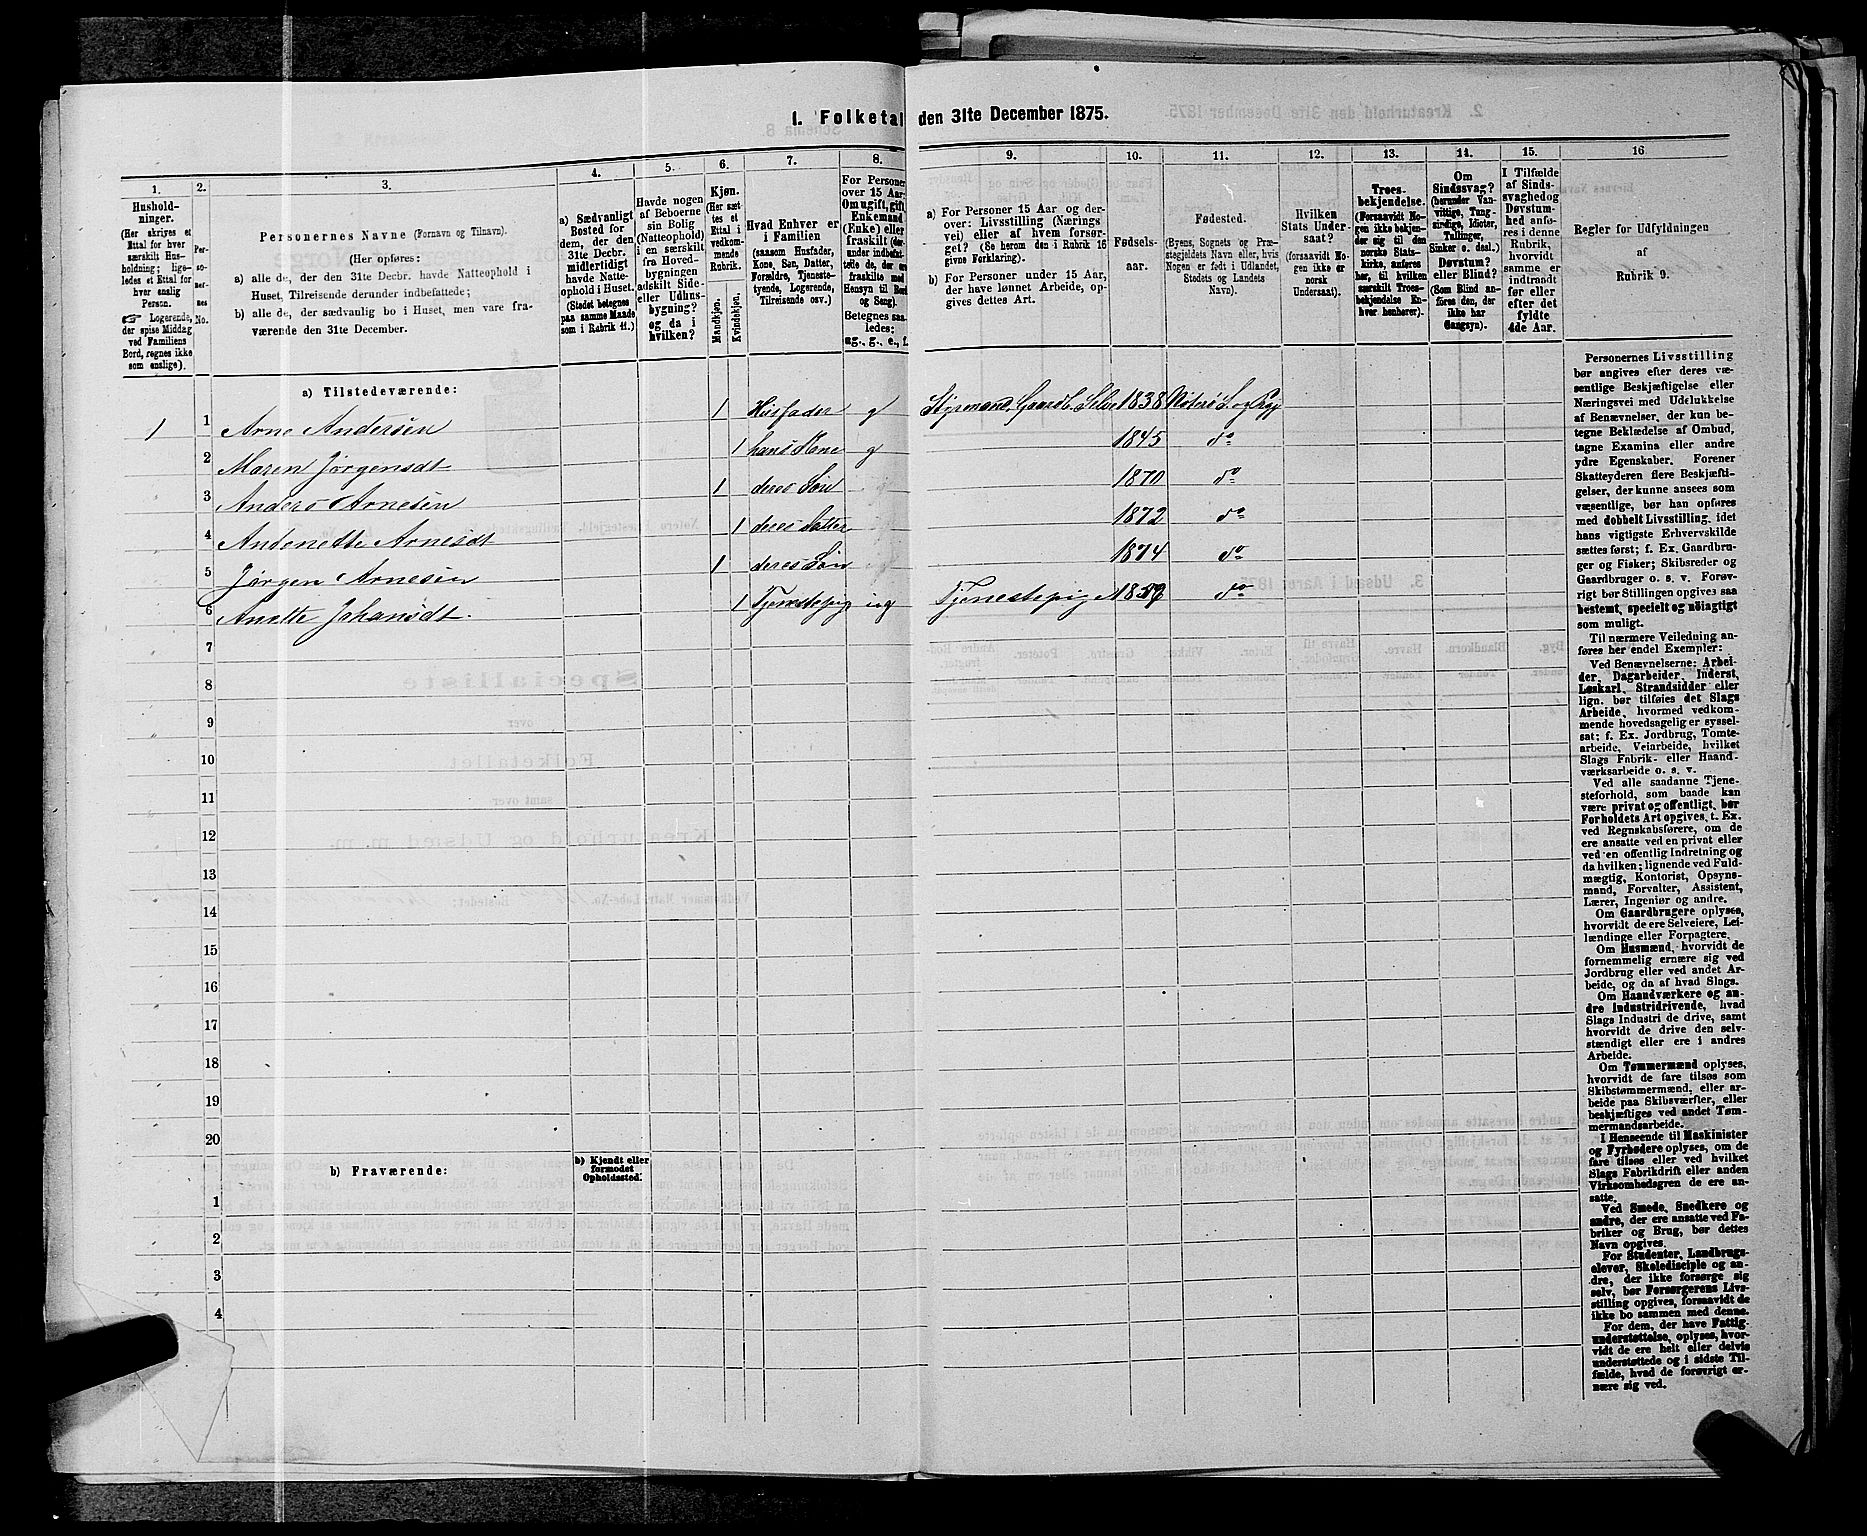 1. Folketal den 31te December 1875.
1. 2. 3. 4. 5. 6. 7. 8. 9. 10. 11. 12. 13. 14. 15. 16
Hushold-
ninger.
(Her skrives et
Ettal for hver
særskilt Hus-
holdning; lige-
ledes et Ettal for
hver enslig
Person.
☞ Logerende,
der spise Middag
ved Familiens
Bord, regnes ikke
som enslige).
Per-
so-
ner-
nes
No.
Personernes Navne (Fornavn og Tilnavn).
(Her opføres:
a) alle de, der den 31te Decbr. havde Natteophold i
Huset, Tilreisende derunder indbefattede;
b) alle de, der sædvanlig bo i Huset, men vare fra-
værende den 31te December.
a) Sædvanligt
Bosted for
dem, der den
31te Decbr.
midlertidigt
havde Natte-
ophold i Huset.
(Stedet betegnes
paa samme Maade
som i Rubrik 11.)
Havde nogen
af Beboerne
sin Bolig
(Natteophold)
i en særskilt
fra Hoved-
bygningen
adskilt Side-
eller Udhus-
bygning?
og da i
hvilken?
Kjøn.
(Her sæt-
tes et
Ettal i
vedkom-
mende
Rubrik.
Mandkjøn.
Kvindekjøn.
Hvad Enhver er
i Familien
(saasom Husfader,
Kone, Søn, Datter,
Forældre, Tjeneste-
tyende, Logerende,
Tilreisende osv.)
For Personer
over 15 Aar:
Om ugift, gift,
Enkemand
(Enke) eller
fraskilt (der-
under indbefat-
tede de, der ere
fraskilte med
Hensyn til Bord
og Seng).
Betegnes saa-
ledes:
ug., g., e., f.
a) For Personer 15 Aar og der-
over: Livsstilling (Nærings-
vei) eller af hvem forsør-
get? (Se herom den i Rubrik 16
givne Forklaring).
b) For Personer under 15 Aar,
der have lønnet Arbeide, op-
gives dettes Art.
Fødsels-
aar.
Fødested.
(Byens, Sognets og Præ-
stegjeldets Navn eller, hvis
Nogen er født i Udlandet,
Stedets og Landets
Navn).
Hvilken
Stats Under-
saat?
(forsaavidt No-
gen ikke er
norsk
Undersaat).
Troes-
bekjendelse.
(Forsaavidt No-
gen ikke bekjen-
der sig til den
norske Stats-
kirke, anføres
her, til hvilken
særskilt Troes-
bekjendelse En-
hver henhører).
Om
Sindssvag?
(herunder Van-
vittige, Tung-
sindige, Idioter,
Tullinger,
Sinker o. desl.)
Døvstum?
eller Blind?
(Som Blind an-
føres den, der
ikke har
Gangsyn).
I Tilfælde
af Sinds-
svaghed og
Døvstum-
hed anfø-
res i denne
Rubrik,
hvorvidt
samme er
indtraadt
før eller
efter det
fyldte
4de Aar.
Regler for Udfyldningen
af
Rubrik 9.
a) Tilstedeværende:
1 1 Arne Andersen 1 Husfader g Styrmand, Gaardb. Selv 1838 Nøterø S. og Pgj
2 Maren Jørgensdt 1 hans Kone g 1845 do
3 Anders Arnesen 1 deres Søn 1870 do
4 Andenette Arnesdt 1 deres Datter 1872 do
5 Jørgen Arnesen 1 deres Søn 1874 do
6 Anette Johansdt. 1 Tjenestepig ug Tjenestepige do
7
8
9
10
11
12
13
14
15
16
17
18
19
20
b) Fraværende:
b) Kjendt eller
formodet
Opholdssted.
1
2
3
4
Personernes Livsstilling
bør angives efter deres væ-
sentlige Beskjæftigelse eller
Næringsvei med Udelukkelse
af Benævnelser, der kun be-
tegne Beklædelse af Ombud,
tagne Examina eller andre
ydre Egenskaber. Forener
Skatteyderen flere Beskjæfti-
gelser, der kunne ansees som
væsentlige, bør han opføres
med dobbelt Livsstilling, idet
hans vigtigste Erhvervskilde
sættes først; f. Ex. Gaardbru-
ger og Fisker; Skibsreder og
Gaardbruger o. s. v. Forøv-
rigt bør Stillingen opgives saa
bestemt, specielt og nøiagtigt
som muligt.
Til nærmere Veiledning an-
føres her endel Exempler:
Ved Benævnelserne: Arbei-
der, Dagarbeider, Inderst,
Løskarl, Strandsidder eller
lign. bør tilføies det Slags
Arbeide, hvormed vedkom-
mende hovedsagelig er syssel-
sat; f. Ex. Jordbrug, Tomte-
arbeide, Veiarbeide, hvilket
Slags Fabrik- eller Haand-
værksarbeide o. s. v.
Ved alle saadanne Tjene-
steforhold, som baade kan
være privat og offentligt, bør
Forholdets Art opgives, t. Ex.
ved Regnskabsførere, om de
ere ansatte ved en privat eller
ved en offentlig Indretning og
da hvilken; lignende ved Fuld-
mægtig, Kontorist, Opsyns-
mand, Forvalter, Assistent,
Lærer, Ingeniør og andre.
Om Gaardbrugere oplyses,
hvorvidt de ere Selveiere, Lei-
lændinge eller Forpagtere.
Om Husmænd, hvorvidt de
fornemmelig ernære sig ved
Jordbrug eller ved andet Ar-
beide, og da af hvad Slags.
Om Haandværkere og an-
dre Industridrivende, hvad
Slags Industri de drive, samt
hvorvidt de drive den selv-
stændigt eller ere i andres
Arbeide.
Om Tømmermænd oplyses,
hvorvidt de fare tilsøs som
Skibstømmermænd, eller ar-
beide paa Skibsværfter, eller
beskjæftiges ved andet Tøm-
mermandsarbeide.
I Henseende til Maskinister
og Fyrbødere oplyses, om de
fare tilsøs eller ved hvilket
Slags Fabrikdrift eller anden
Virksomhedsgren de ere an-
satte.
Ved Smede, Snedkere og
andre, der ere ansatte ved Fa-
briker og Brug, bør dettes
Navn opgives.
For Studenter, Landbrugs-
elever, Skoledisciple og an-
dre, der ikke forsørge sig
selv, bør Forsørgerens Livs-
stilling opgives, forsaavidt de
ikke bo sammen med denne.
For dem, der have Fattig-
understøttelse, oplyses, hvor-
vidt de ere helt eller delvis
understøttede og i sidste Til-
fælde, hvad de forøvrigt er-
nære sig ved.